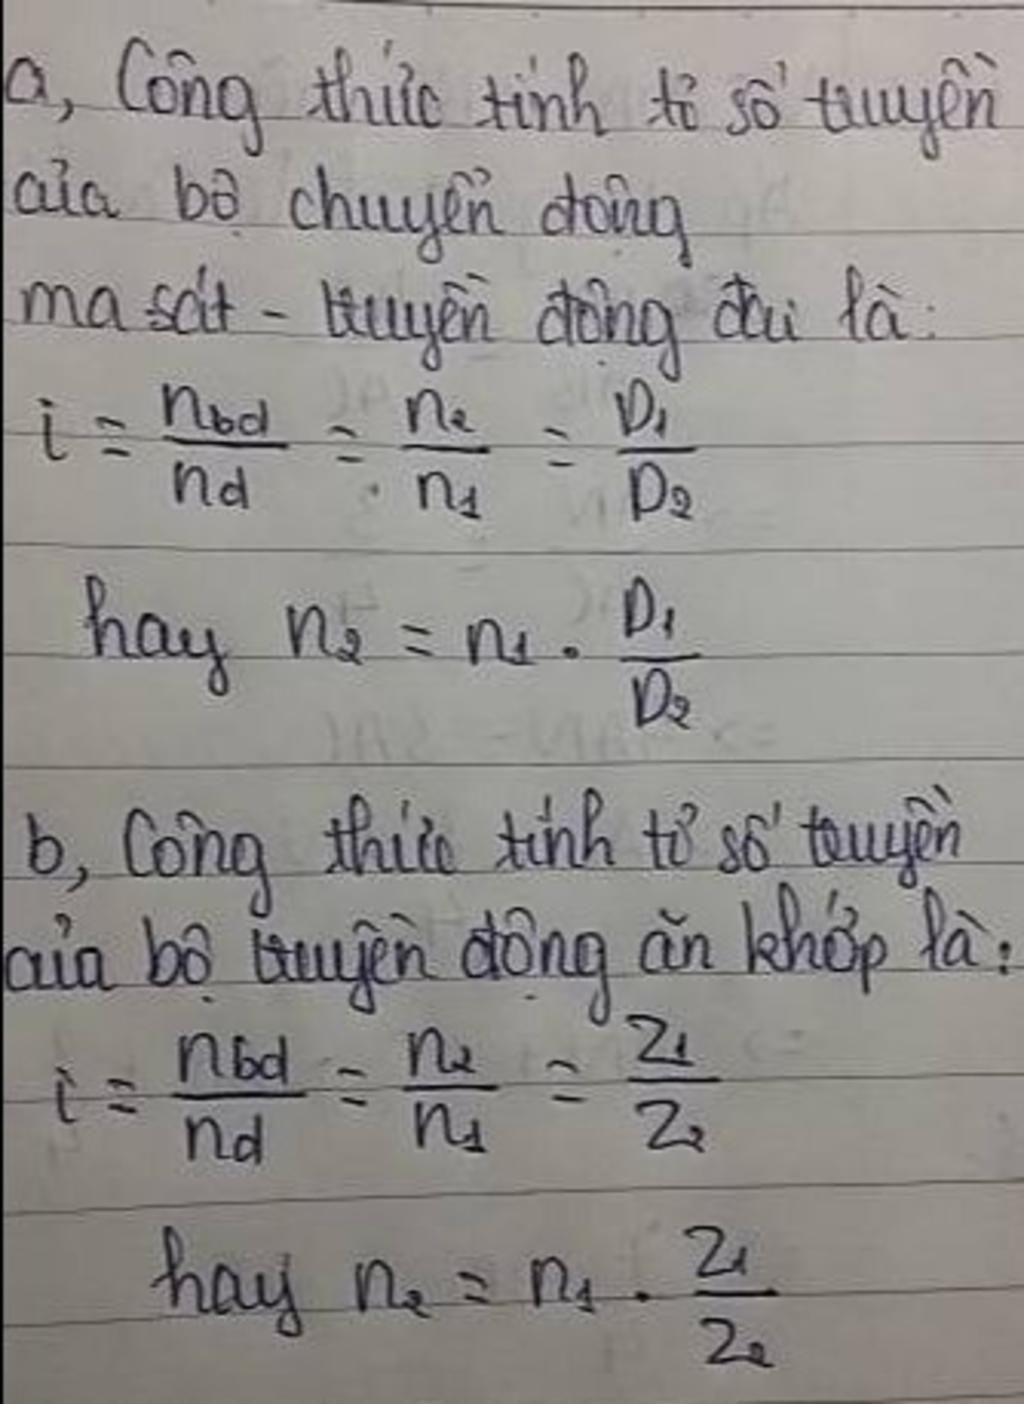 a, Công thức tính tỉ số truyền
của bộ chuyển động
ma sát - truyền động đai là:
i = nbd/nd = n2/n1 = D1/D2
hay n2 = n1 . D1/D2
b, Công thức tính tỉ số truyền
của bộ truyền động ăn khớp là:
i = nbd/nd = n2/n1 = Z1/Z2
hay n2 = n1 . Z1/Z2